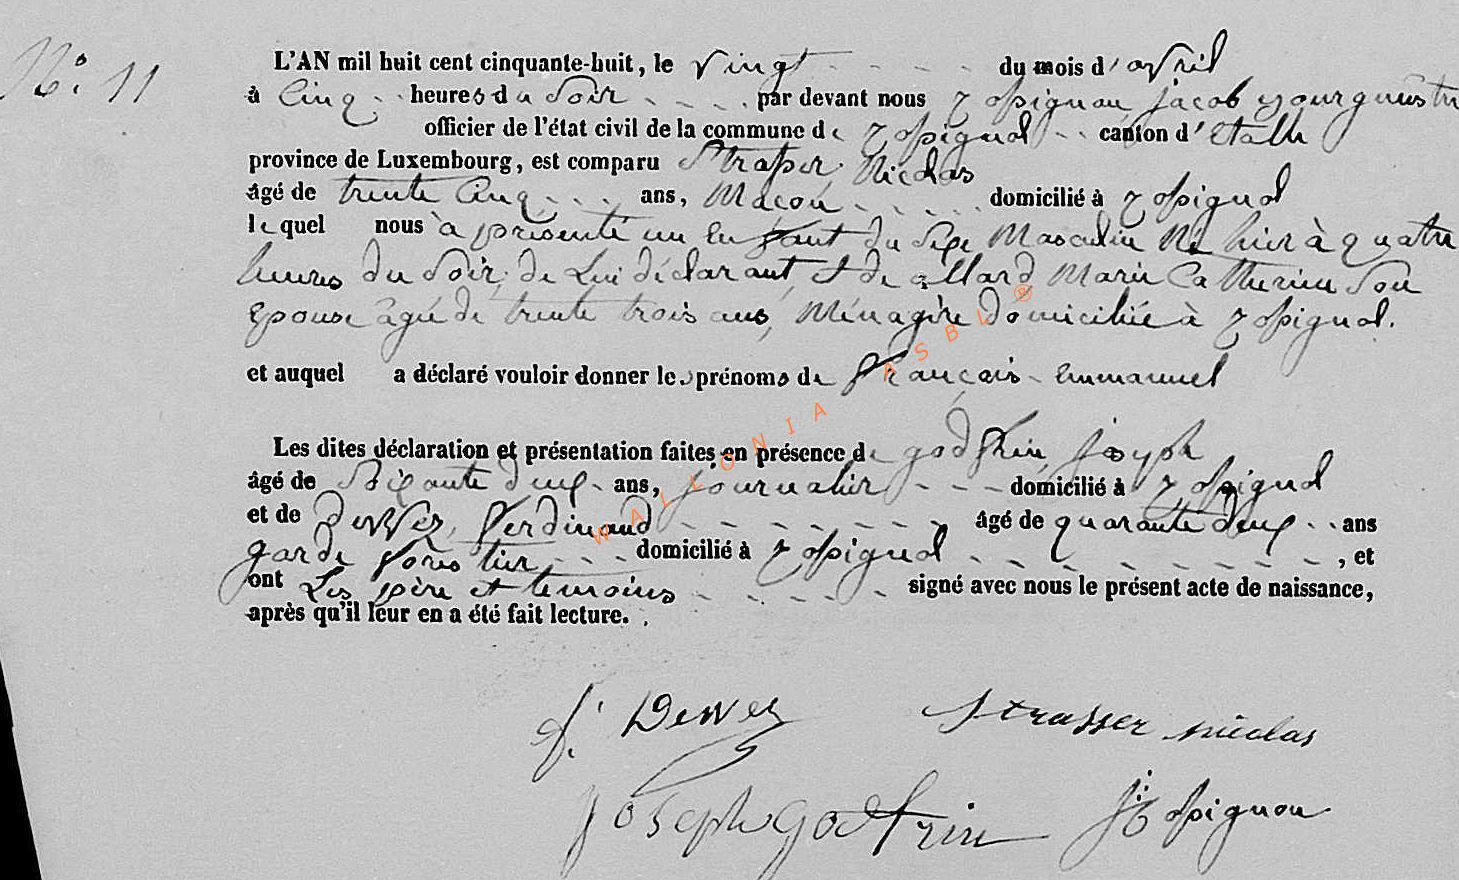 N.º 11
L'AN mil huit cent cinquante-huit, le vingt - - - - du mois d'avril
à Cinq - - heures du Soir - - - - par devant nous jacob Bourguéstre
officier de l'état civil de la commune de - - canton d'Etalle
province de Luxembourg, est comparu Strasser Nicolas
âgé de trente Cinq - - - ans, Maçon - - - - - domicilié à
lequel nous à présenté un Enfant du Sexe Masculin Né hier à quatre
heures du Soir, de Lui déclarant, et de allard Marie Catherine Son
Epouse âgée de trente trois ans, Ménagère domiciliée à
et auquel a déclaré vouloir donner les prénoms de François - Emmanuel
Les dites déclaration et présentation faites en présence de godfrin joseph
âgé de Soixante deux - ans, journalier - - - - domicilié à
et de Dewez, Ferdinand - - - - - - - - âgé de quarante deux - - ans
garde forestier - - - domicilié à - - - - - - - - - , et
ont Les père et temoins - - - - - signé avec nous le présent acte de naissance,
après qu'il leur en a été fait lecture.
f. Dewez Strasser nicolas
Joseph godfrin
WALLONIA ASBL ®